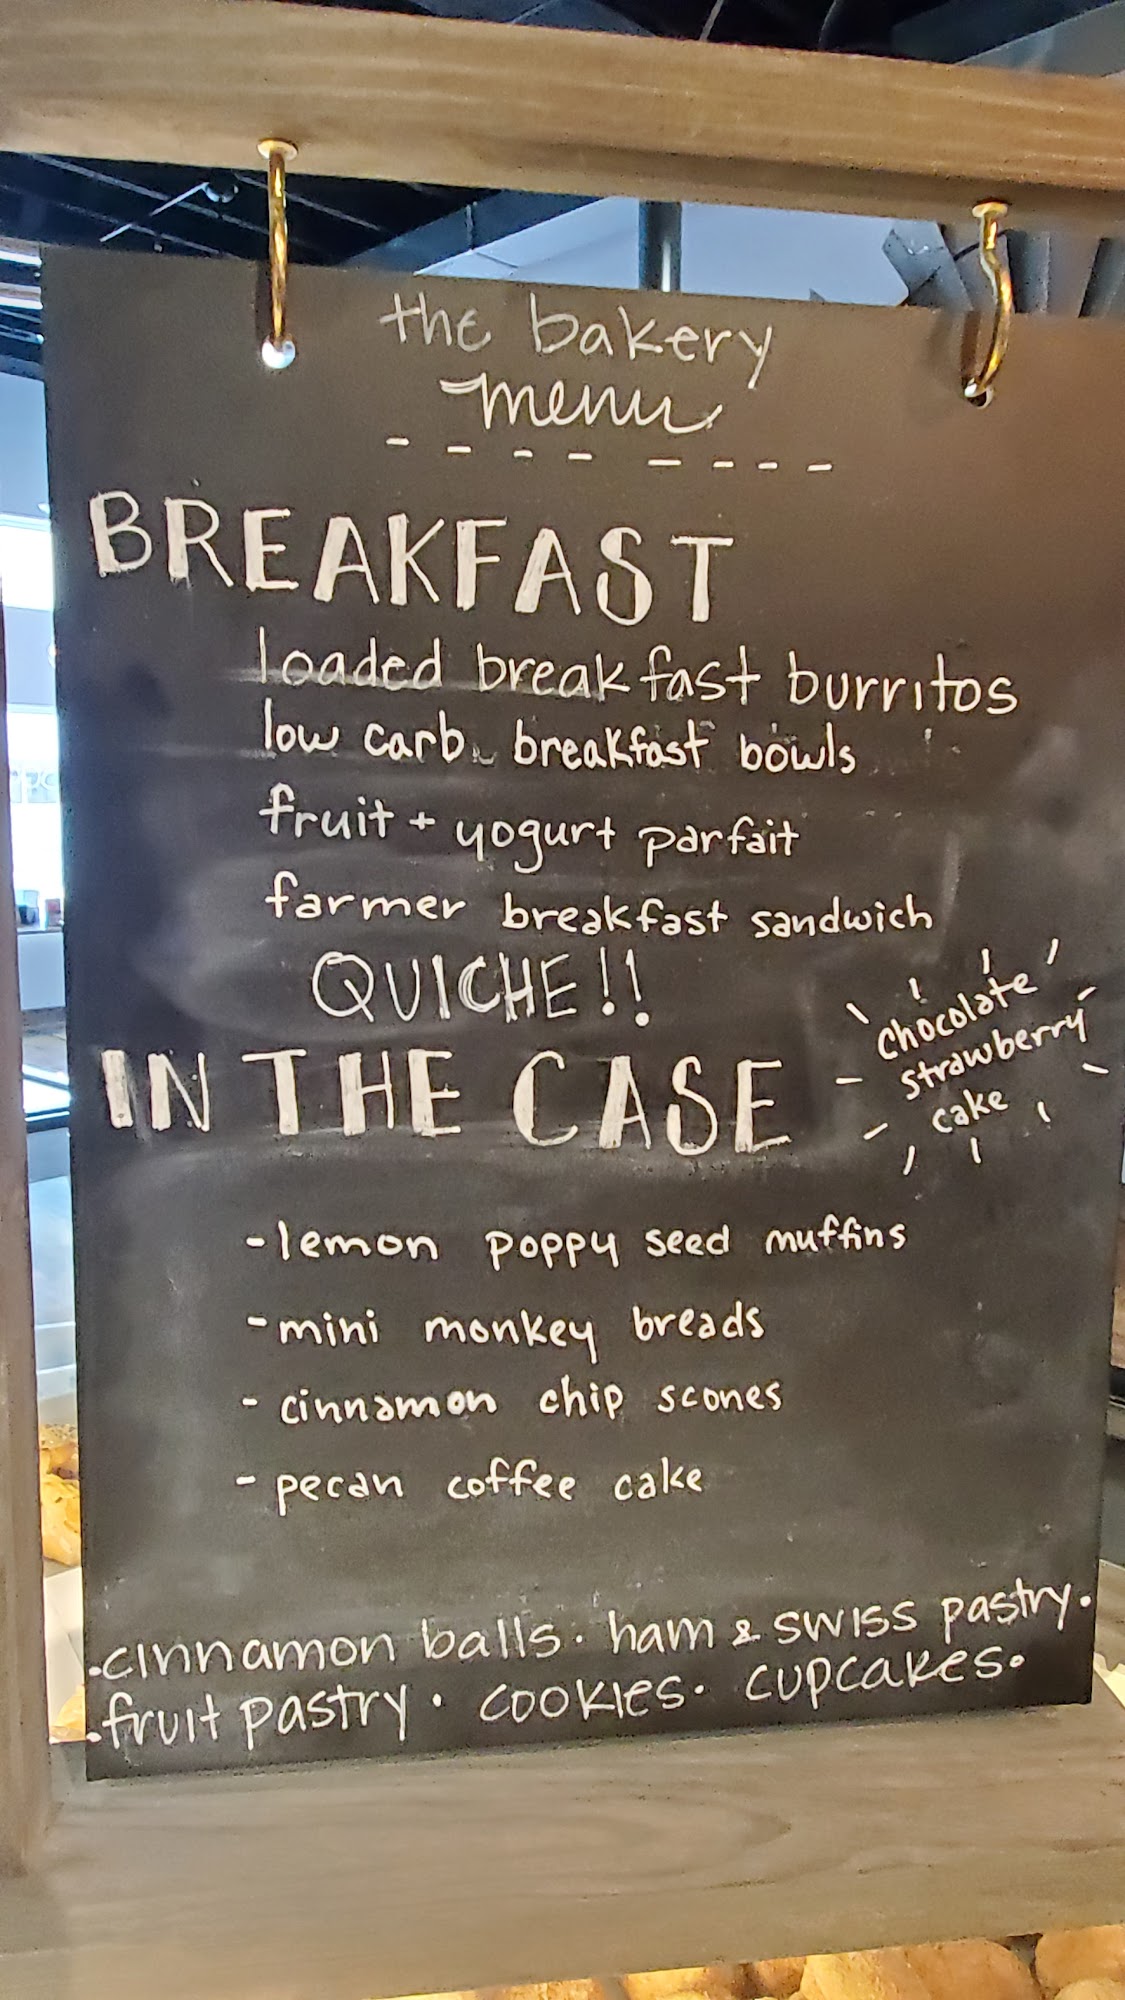 the bakery
menu
BREAKFAST
loaded breakfast burritos
low carb breakfast bowls
fruit + yogurt parfait
farmer breakfast sandwich
QUICHE!!
IN THE CASE
chocolate
strawberry
cake
- lemon poppy seed muffins
- mini monkey breads
- cinnamon chip scones
- pecan coffee cake
• cinnamon balls • ham & swiss pastry •
• fruit pastry • cookies • cupcakes •